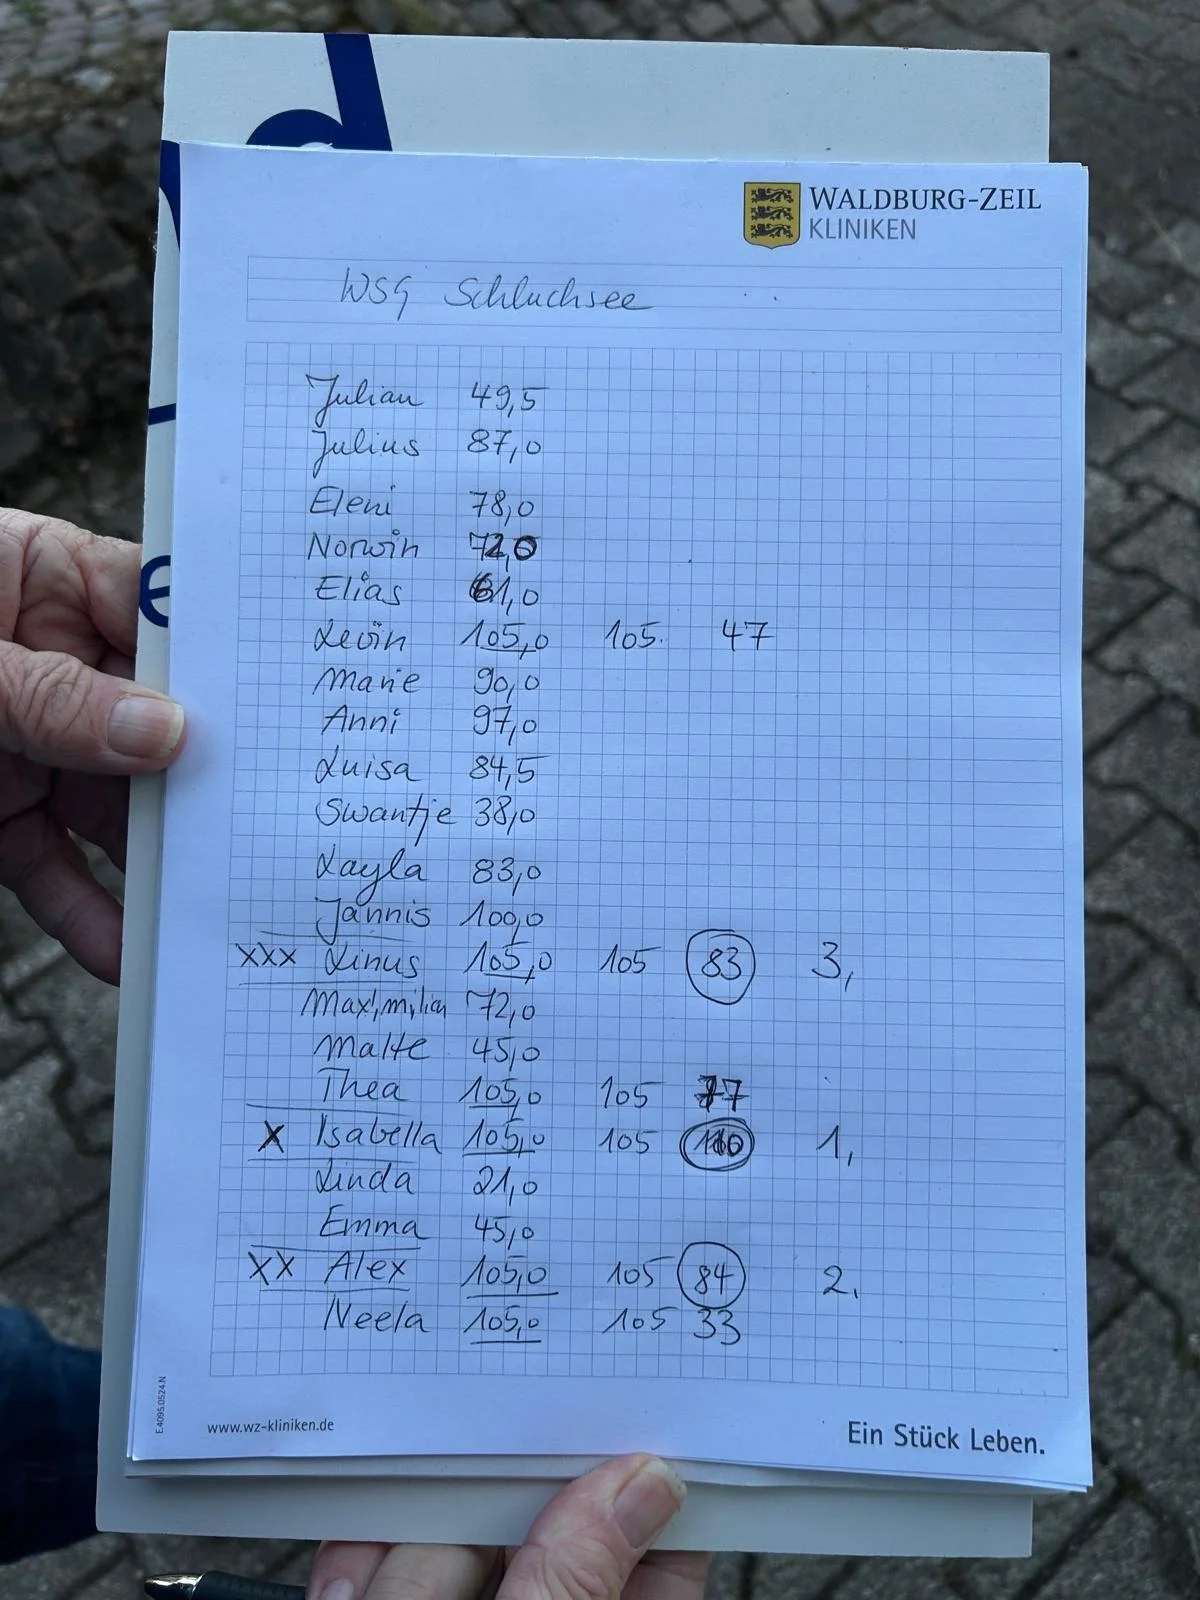 WALDBURG-ZEIL
KLINIKEN
WSG Schluchsee
Julian 49,5
Julius 87,0
Eleni 78,0
Norwin 72,0
Elias 61,0
Levin 105,0 105. 47
Marie 90,0
Anni 97,0
Luisa 84,5
Swantje 38,0
Layla 83,0
Jannis 100,0
XXX Linus 105,0 105 83 3,
Maximilian 72,0
Malte 45,0
Thea 105,0 105 77
X Isabella 105,0 105 110 1,
Linda 21,0
Emma 45,0
XX Alex 105,0 105 84 2.
Neela 105,0 105 33
E.4095.0524.N
www.wz-kliniken.de
Ein Stück Leben.